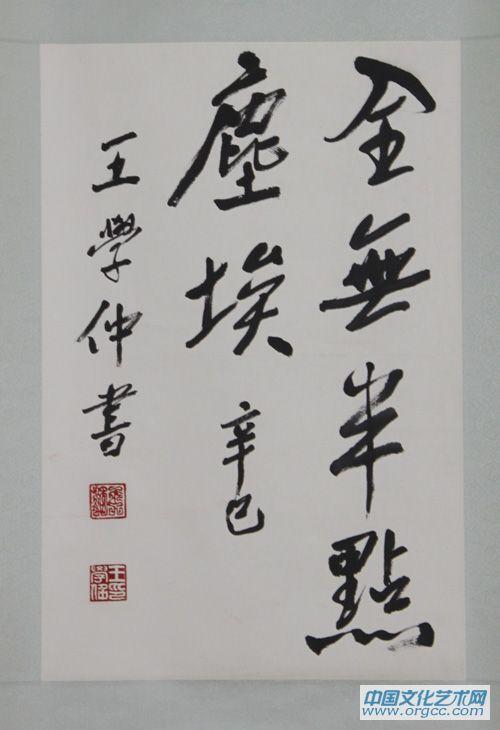 全無半點
塵埃 辛巳
王學仲書
王學仲印
中国文化艺术网
www.orgcc.com